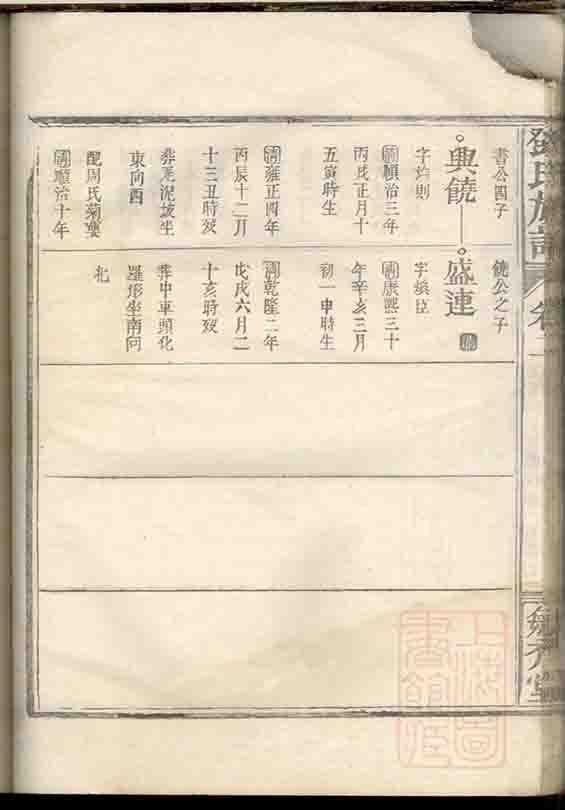 鄧氏族譜
卷二
書公四子
興饒
字均則
清順治三年
丙戌正月十
五寅時生
清雍正四年
丙辰十二月
十三丑時歿
葬泥坡坐
東向酉
配周氏菊嬰
清順治十年
饒公之子
盛連
字臣
清康熙三十
年辛亥三月
初一申時生
清乾隆二年
戊戌六月二
十亥時歿
葬中車頭化
形坐南向
北
堂
上海圖
書館藏